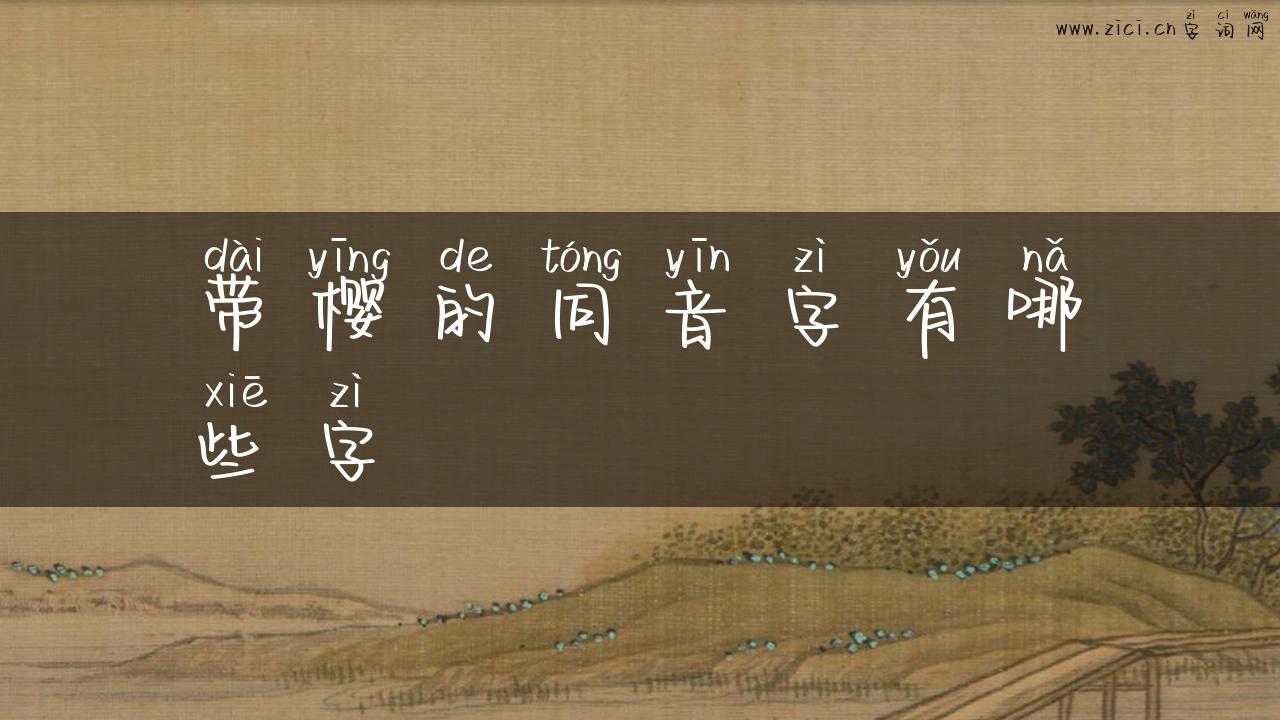 zì cí wǎng
www.zici.cn字词网
dài yīng de tóng yīn zì yǒu nǎ
带樱的同音字有哪
xiē zì
些字